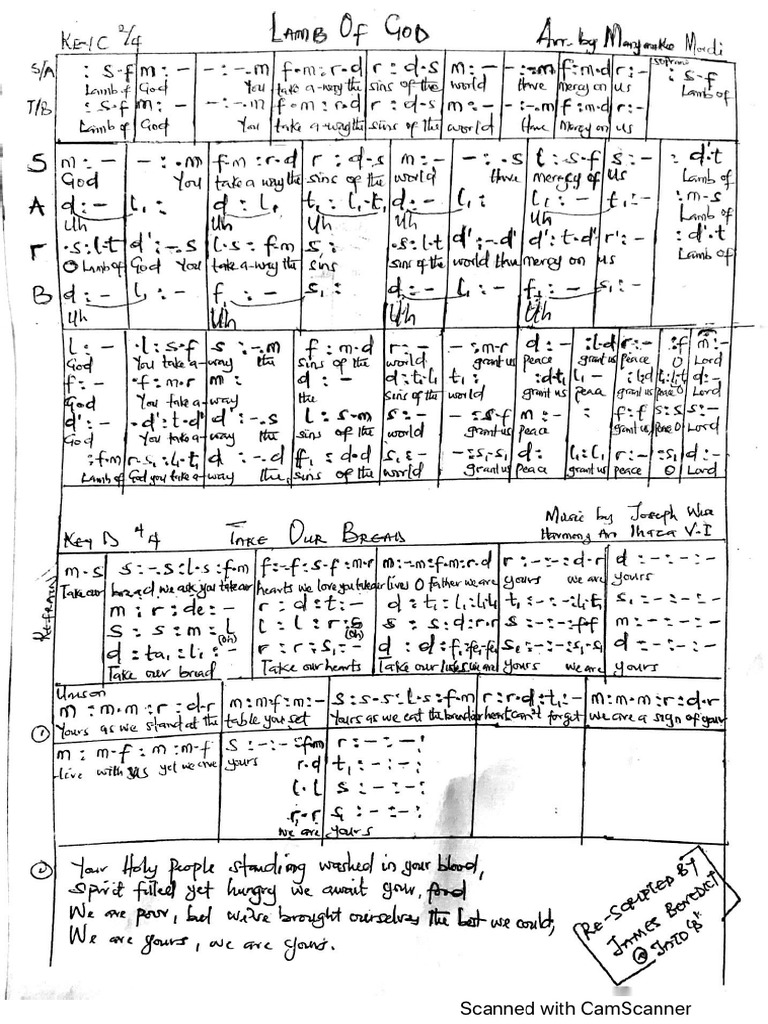 LAMB OF GOD
Key C 2/4
Arr. by
S/A : s-f m:- -:-.m f.m:r.d r:d.s m:- -:-.m f:m.d r:- soprano : s-f
Lamb of God You take a-way the sins of the world Have mercy on us Lamb of
T/B : s-f m:- -:-.m f.m:r.d r:d.s m:- -:-.m f:m.d r:-
Lamb of God You take a-way the sins of the world Have Mercy on us
S m:- -:.m f.m:r.d r:d-s m:- -:.s l:s.f s:- : d'.t
God You take a way the sins of the world Have mercy of us Lamb of
A d:- l₁: d:l₁ t₁:l₁.t₁ d:- l₁: l₁:- t₁:- : m-s
Uh Uh Uh Uh Uh Lamb of
T .s:l.t d':-.s l.s:f.m s: .s:l.t d':-.d' d':t.d' r':- : d'.t
O Lamb of God You take a-way the sins sins of the world mercy on us Lamb of
B d:- l₁:- f₁:- s₁: d:- l₁:- f₁:- s₁:-
Uh Uh Uh Uh
l:- .l:s.f s:-.m f:m.d r:- -:m-r d:- :l.d r:- :f m:-
God You take a-way the sins of the world grant us peace grant us peace O Lord
f:- .f:m.r m: d:- d:t₁.l₁ t₁: :dt₁ l₁- :l.d t₁:l₁.t d:-
God You take a-way the sins of the world grant us peace grant us peace O Lord
d':- .d':t.d' d':-.s l:s.m s:- -:s.f m:- : f:f s:s s:-
God You take a-way the sins of the world grant us peace grant us peace O Lord
:f.m r.s₁:l₁.t₁ d:-.d f₁:d.d s₁:- -:s₁-s₁ d: l₁:l₁ r:- :s₁ d:-
Lamb of God you take a-way the sins of the world grant us peace grant us peace O Lord
Key D 4/4
TAKE OUR BREAD
Music by Joseph Wise
V-I
Refrain
m.s s:-.s:l.s:f.m f:-.f:s.f:m.r m:-.m:f.m:r.d r:-:-:d.r d:-:-:-
Take our bread we ask you take our hearts we love you take our lives O father we are yours we are yours
m:r:de:- r:d:t:- d:t₁:l₁:l₁.l₁ t₁:-:-:l₁.t₁ s₁:-:-:-
s:s:m:l (oh) l:l:r:s (oh) s:s:d:r.r s:-:-:f.f m:-:-:-
d:ta₁:l₁:- r:r:s₁:- d:d:f₁:fe₁.fe₁ s₁:-:-:s₁.s₁ d:-:-:-
Take our bread Take our hearts Take our lives we are yours we are yours
Unison
① m:m.m:r:d.r m:m.f:m:- s:s-s:l.s:f.m r:r.d:t₁:- m:m.m:r:d.r
Yours as we stand at the table you set Yours as we eat the bread our heart can't forget we are a sign of your
m:m-f:m:m-f s:-:-:f.m r:-:-:-
live with us yet we are yours
r.d t₁:-:-:-
l.l s:-:-:-
r.r s₁:-:-:-
we are yours
② Your Holy people standing washed in your blood,
Spirit filled yet hungry we await your food
We are poor, but we've brought ourselves the best we could,
We are yours, we are yours.
RE-SCRIPTED BY
JAMES BENEDICT
Scanned with CamScanner